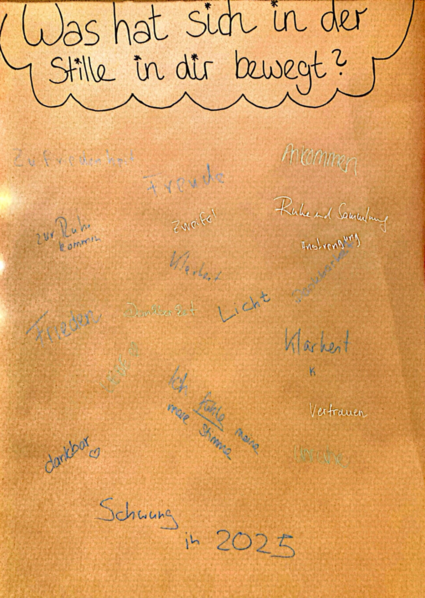 Was hat sich in der
Stille in dir bewegt?
Zufriedenheit
Ankommen
Freude
Ruhe und Sammlung
zur Ruhe
kommen
Zweifel
Anstrengung
Klarheit
Dankbarkeit
Licht
Frieden
Klarheit
K
Ich höre meine
Stimme
Vertrauen
dankbar ♡
Schwung
in 2025